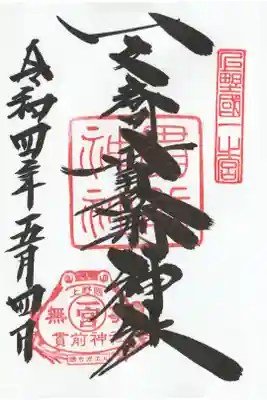 上野國一之宮
一之宮貫前神社
貫前
神社
令和四年五月四日
上野國
一宮
貫前神社